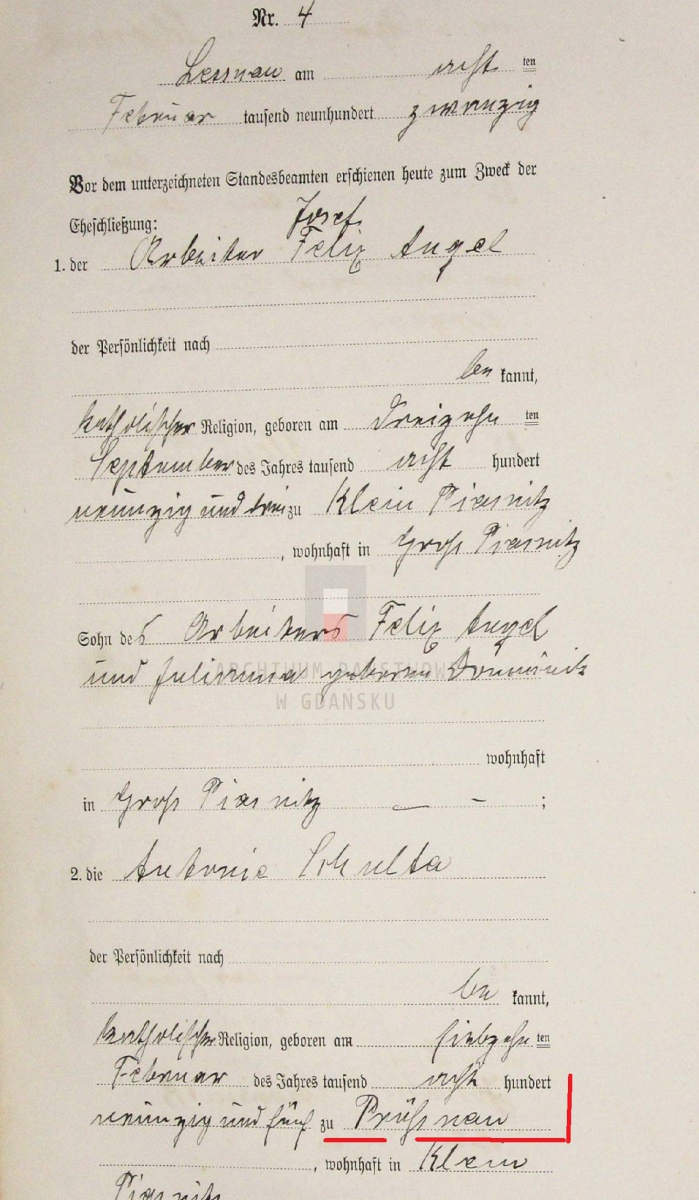 Nr. 4
Lessnau am acht ten
Februar tausend neunhundert zwanzig
Vor dem unterzeichneten Standesbeamten erschienen heute zum Zweck der
Eheschließung: Josef
1. der Arbeiter Felix Angel
der Persönlichkeit nach
be kannt,
katholischer Religion, geboren am dreizehn ten
September des Jahres tausend acht hundert
neunzig und drei zu Klein Piasnitz
, wohnhaft in Groß Piasnitz
Sohn des Arbeiters Felix Angel
und Julianna geborene
ARCHIWUM PAŃSTWOWE
W GDAŃSKU
wohnhaft
in Groß Piasnitz — - ;
2. die Antonie Schulta
der Persönlichkeit nach
be kannt,
katholischer Religion, geboren am siebzehn ten
Februar des Jahres tausend acht hundert
neunzig und fünf zu Prüßnau
, wohnhaft in Klein
Piasnitz